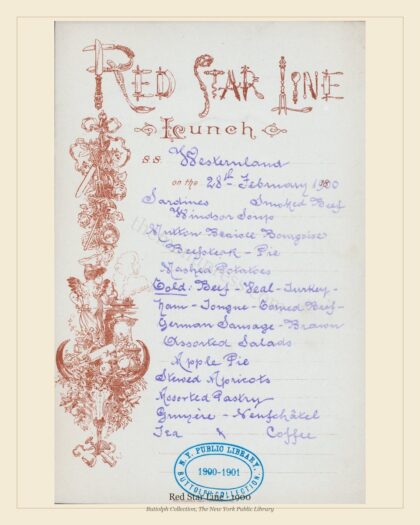 RED STAR LINE
Lunch
S.S. Westernland
on the 28th February 1900
Sardines Smoked Beef
Windsor Soup
Mutton Braisée
Beefsteak - Pie
Mashed Potatoes
Cold: Beef - Veal - Turkey -
Ham - Tongue - Corned Beef -
German Sausage - Brawn
Assorted Salads
Apple Pie
Stewed Apricots
Assorted Pastry
Gruyère - Neufchâtel
Tea & Coffee
N.Y. PUBLIC LIBRARY,
1900-1901
BUTTOLPH COLLECTION.
Red Star Line - 1900
Buttolph Collection, The New York Public Library